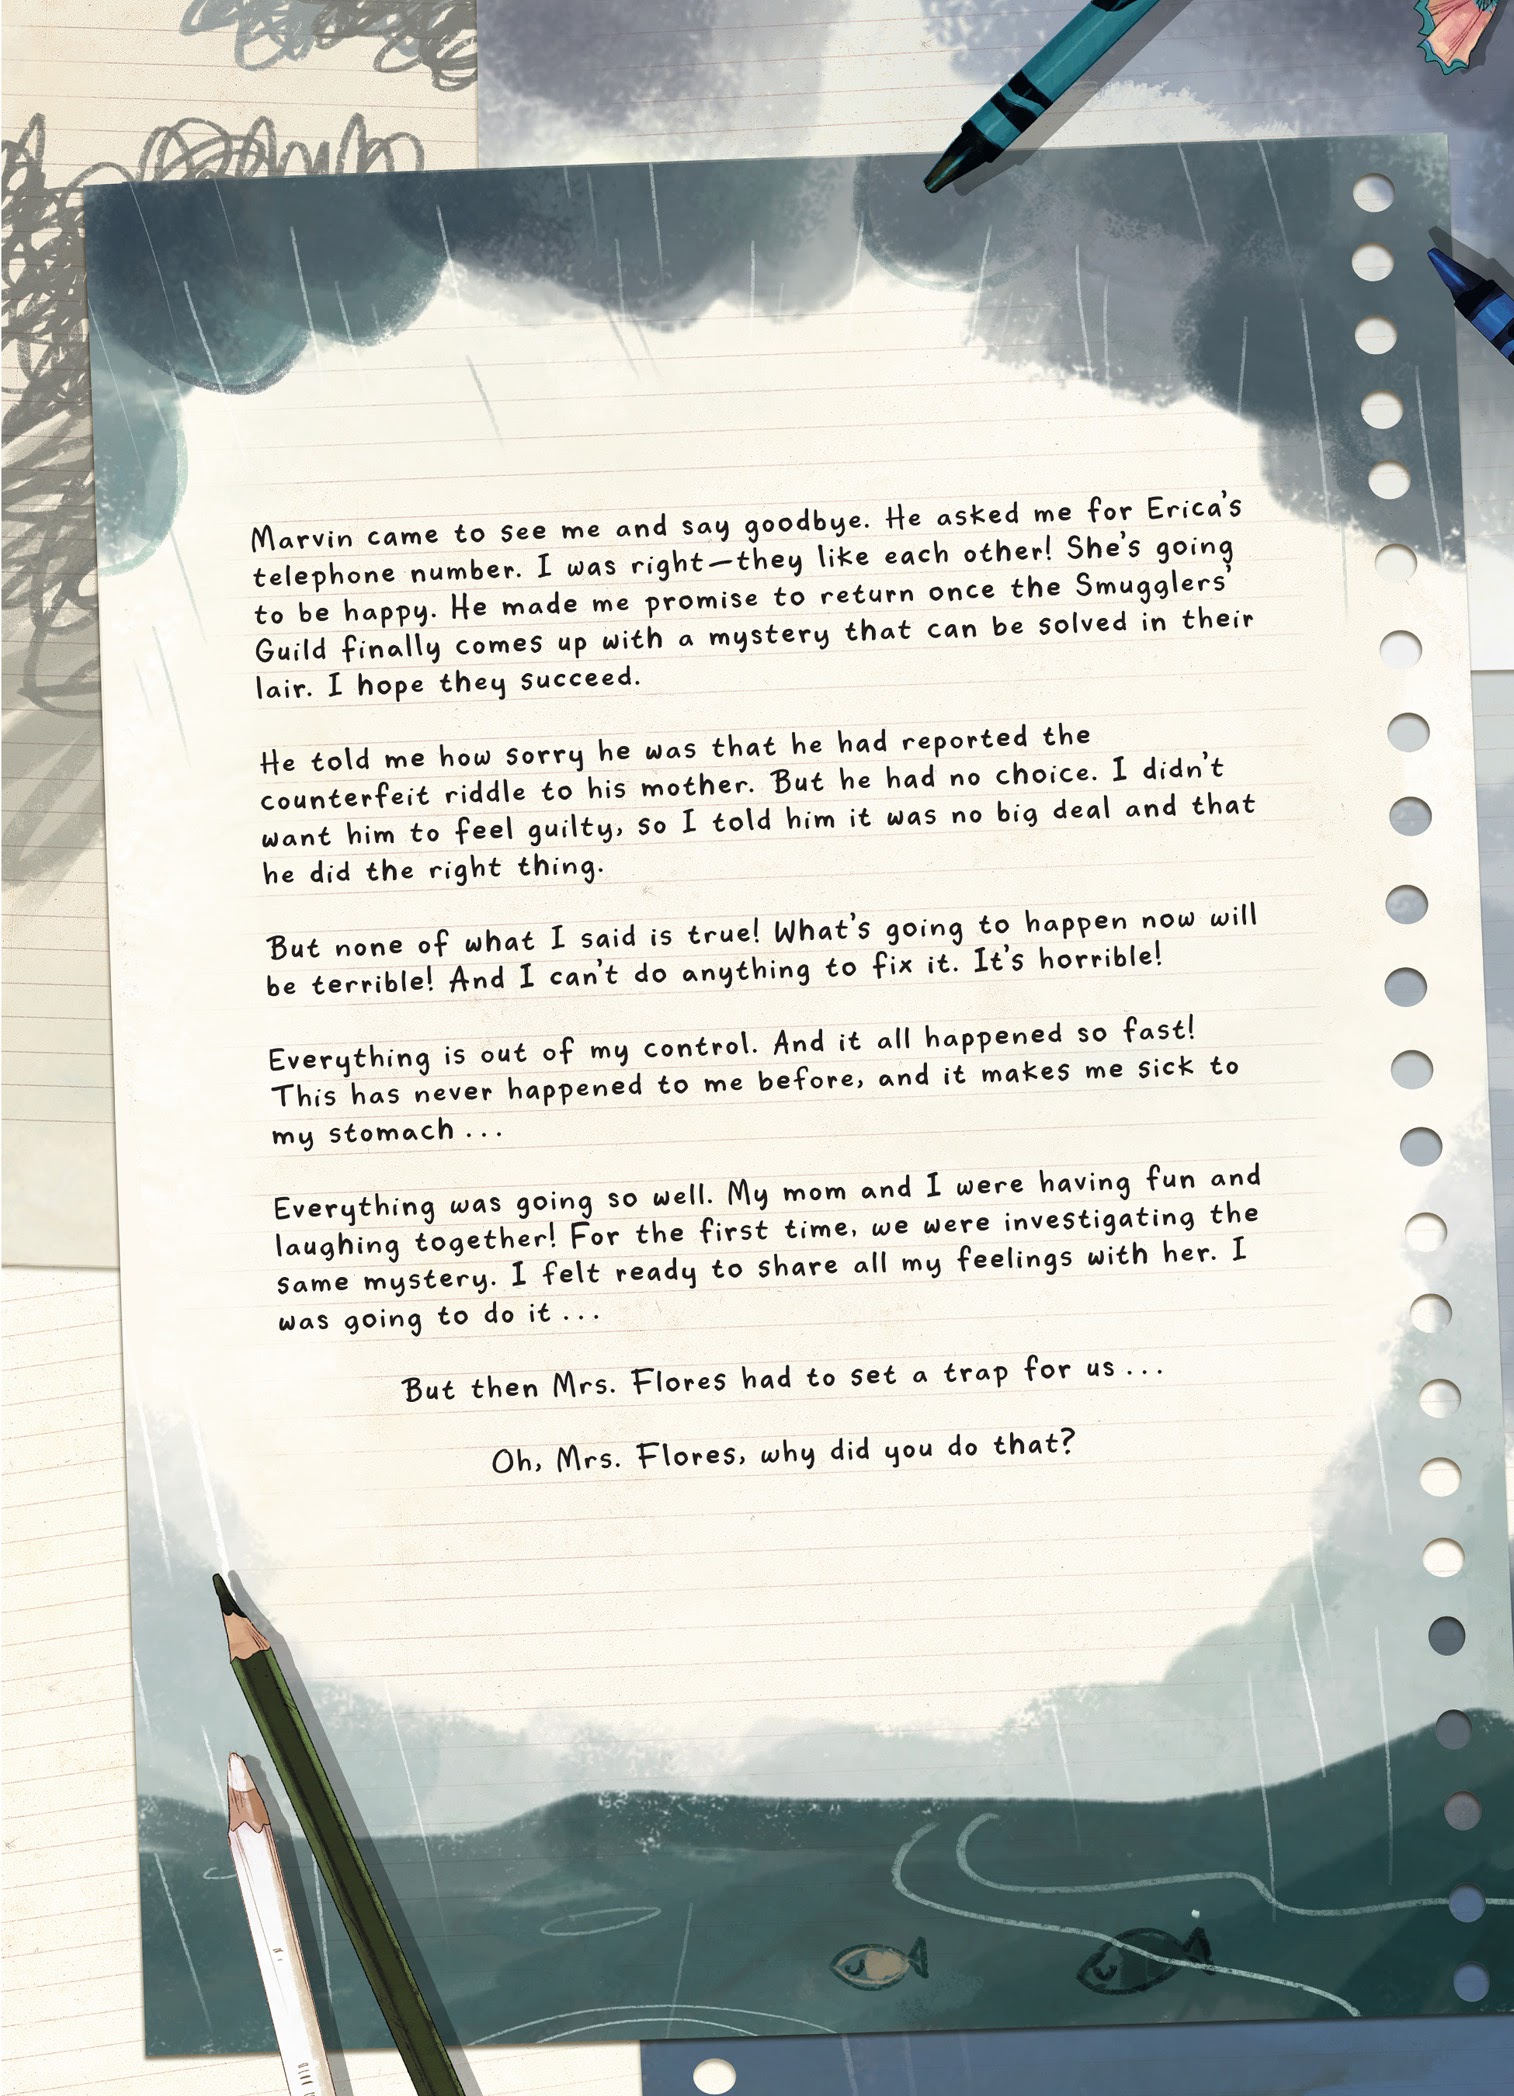 Marvin came to see me and say goodbye. He asked me for Erica's
telephone number. I was right—they like each other! She's going
to be happy. He made me promise to return once the Smugglers'
Guild finally comes up with a mystery that can be solved in their
lair. I hope they succeed.
He told me how sorry he was that he had reported the
counterfeit riddle to his mother. But he had no choice. I didn't
want him to feel guilty, so I told him it was no big deal and that
he did the right thing.
But none of what I said is true! What's going to happen now will
be terrible! And I can't do anything to fix it. It's horrible!
Everything is out of my control. And it all happened so fast!
This has never happened to me before, and it makes me sick to
my stomach ...
Everything was going so well. My mom and I were having fun and
laughing together! For the first time, we were investigating the
same mystery. I felt ready to share all my feelings with her. I
was going to do it ...
But then Mrs. Flores had to set a trap for us ...
Oh, Mrs. Flores, why did you do that?